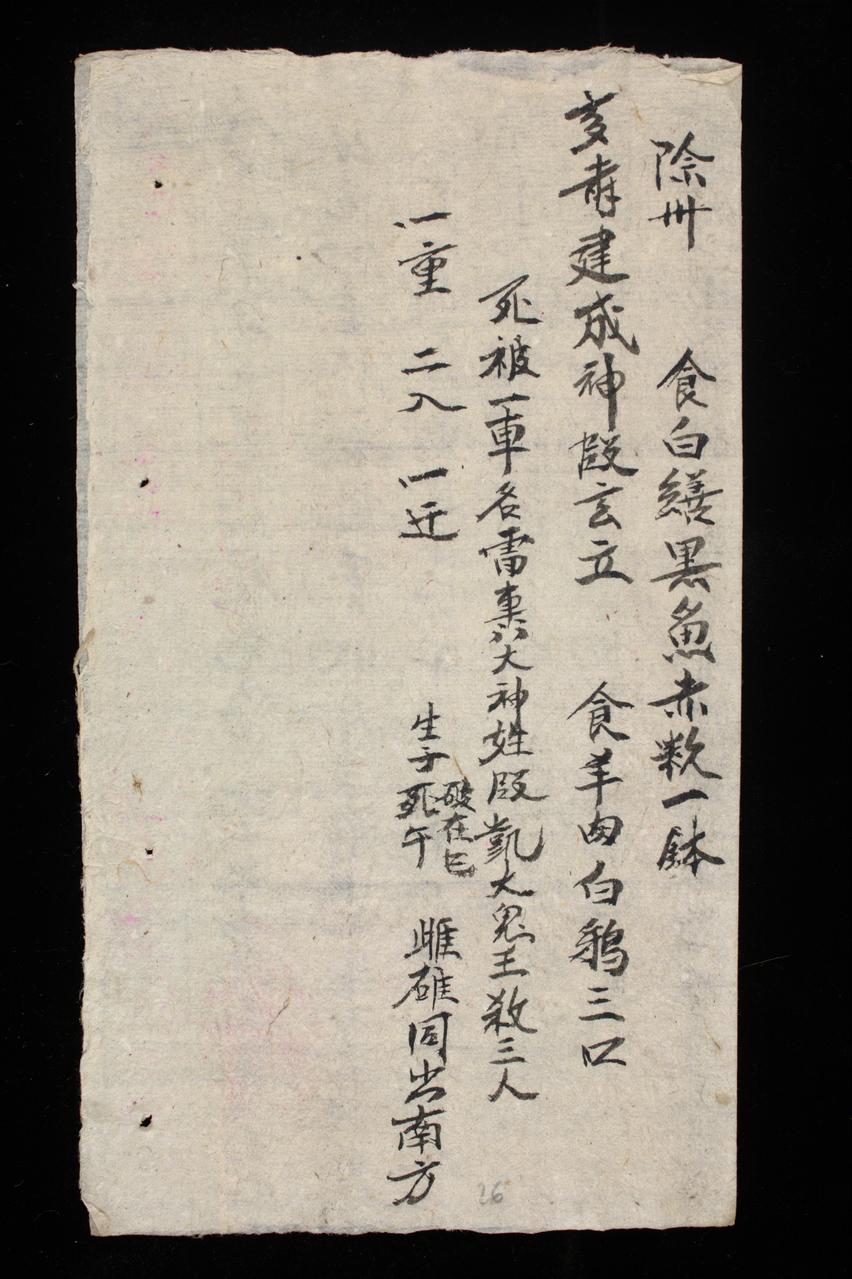 除卅 食白鱔黑魚赤粇一鉢
亥犇建成神殷玄立 食羊肉白鵝三口
死被一車名雷裏八大神姓段凱大鬼王殺三人
一重 二入 一迁 生子死午 破在巳 雌雄同出南方
26